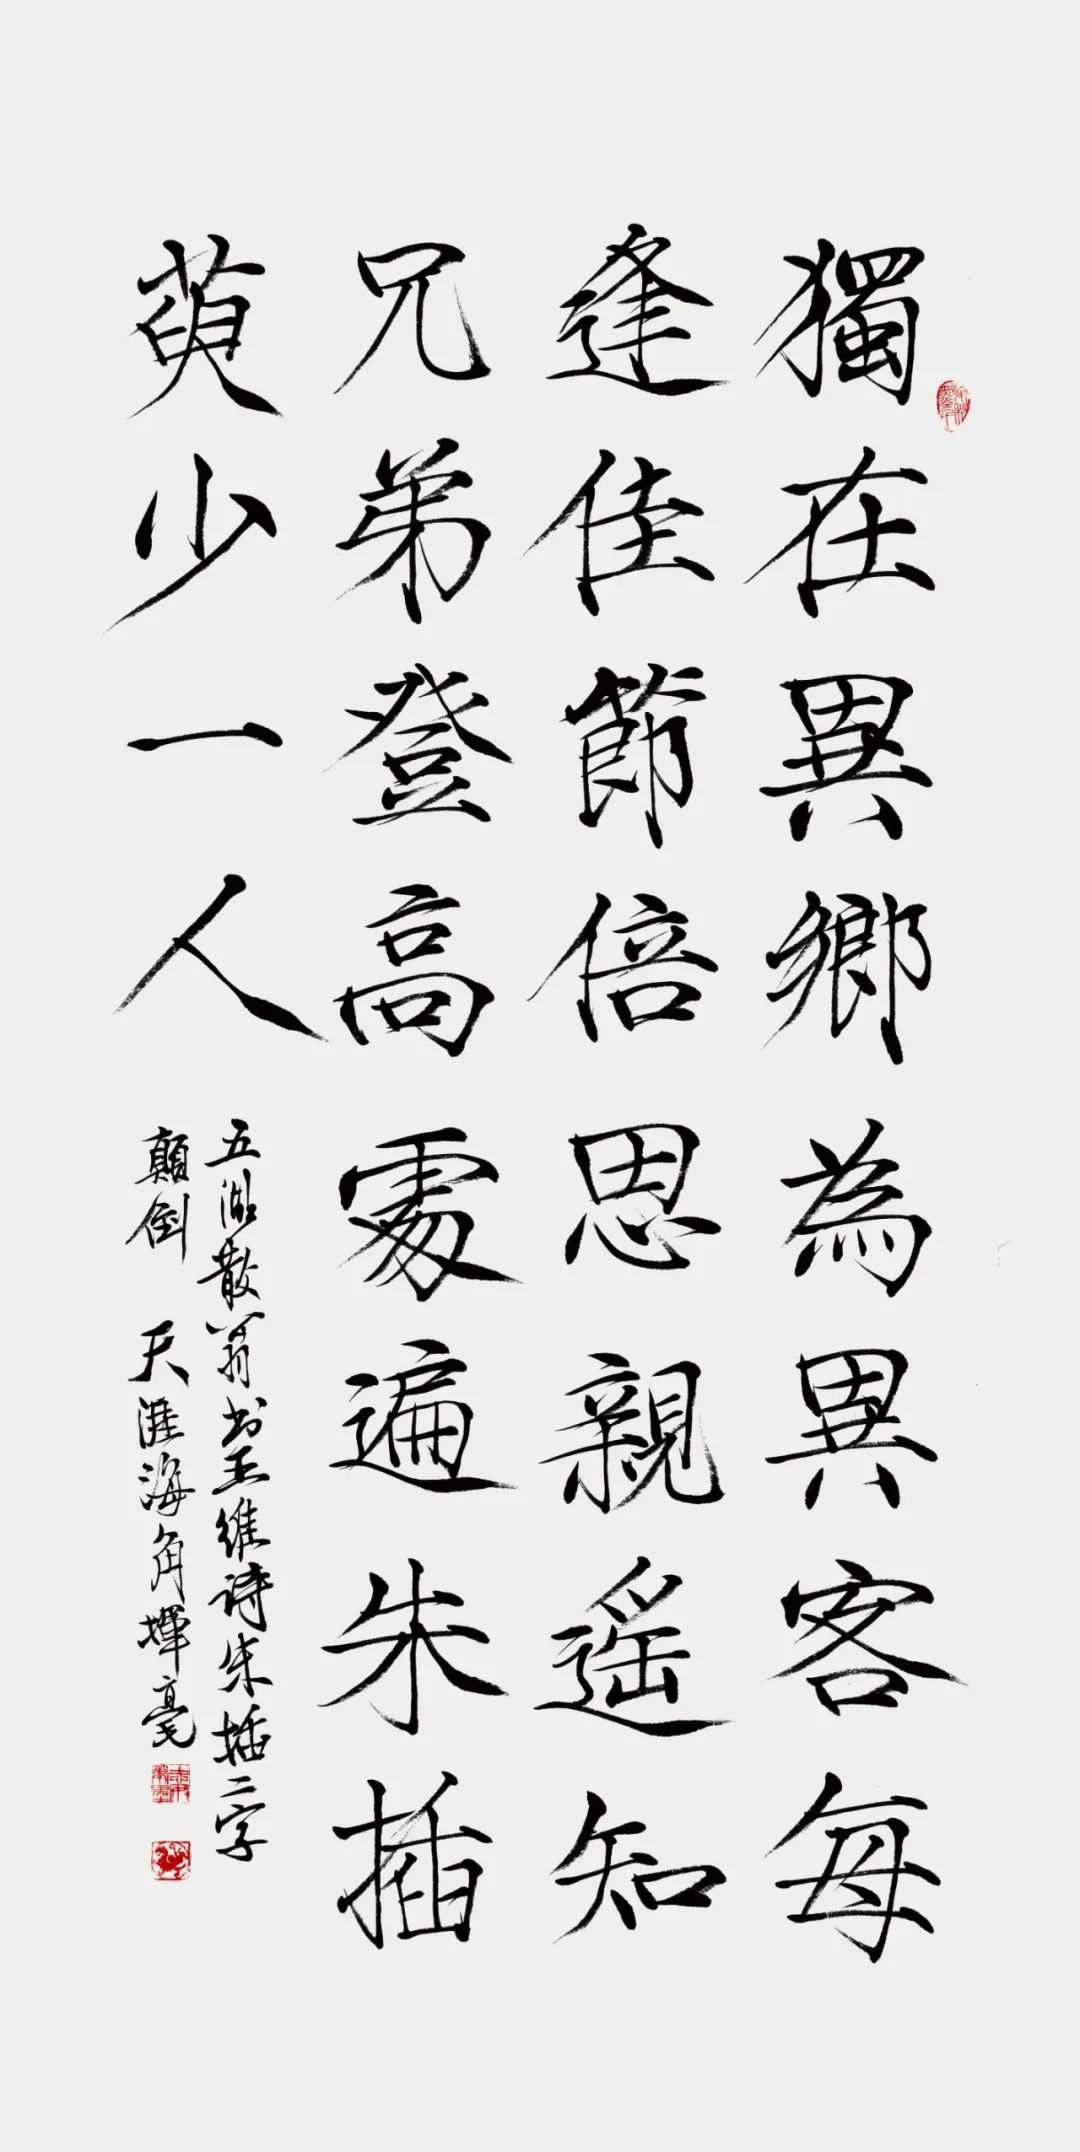 獨在異鄉為異客每
逢佳節倍思親遥知
兄弟登高處遍朱插
萸少一人
五湖散翁書王維詩朱插二字
顛倒 天涯海角揮毫